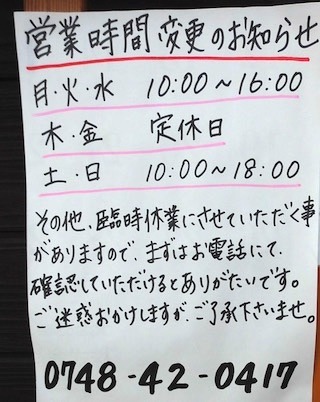 営業時間変更のお知らせ
月・火・水 10:00～16:00
木・金 定休日
土・日 10:00～18:00
その他、臨時休業にさせていただく事
がありますので、まずはお電話にて、
確認していただけるとありがたいです。
ご迷惑おかけしますが、ご了承下さいませ。
0748-42-0417